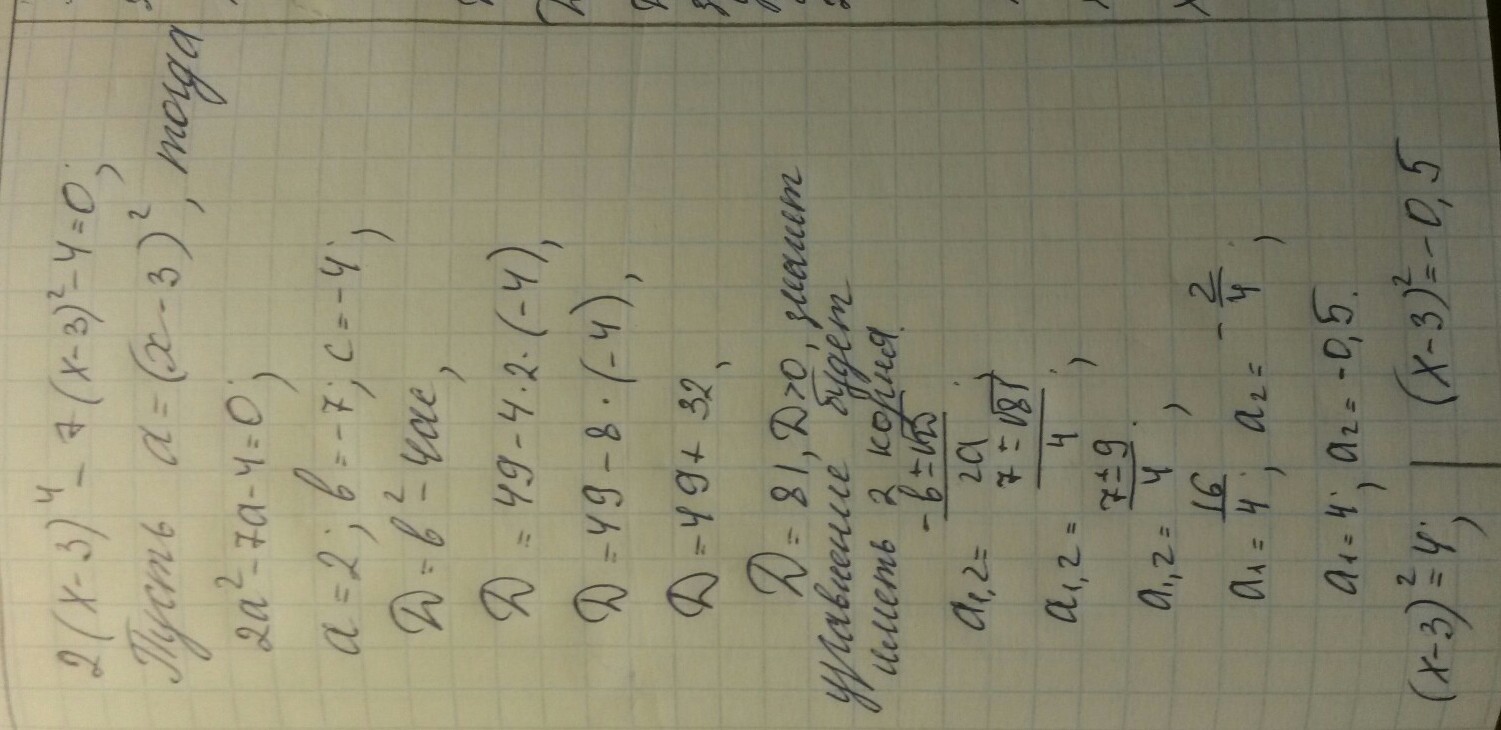 2(x-3)⁴-7(x-3)²-4=0;
Пусть a=(x-3)², тогда
2a²-7a-4=0;
a=2; b=-7; c=-4;
D=b²-4ac;
D=49-4·2·(-4);
D=49-8·(-4);
D=49+32;
D=81, D>0, значит
уравнение будет
иметь 2 корня.
a₁,₂= (-b±√D)/2a;
a₁,₂= (7±√81)/4;
a₁,₂= (7±9)/4;
a₁= 16/4; a₂= -2/4;
a₁=4; a₂=-0,5.
(x-3)²=4; | (x-3)²=-0,5